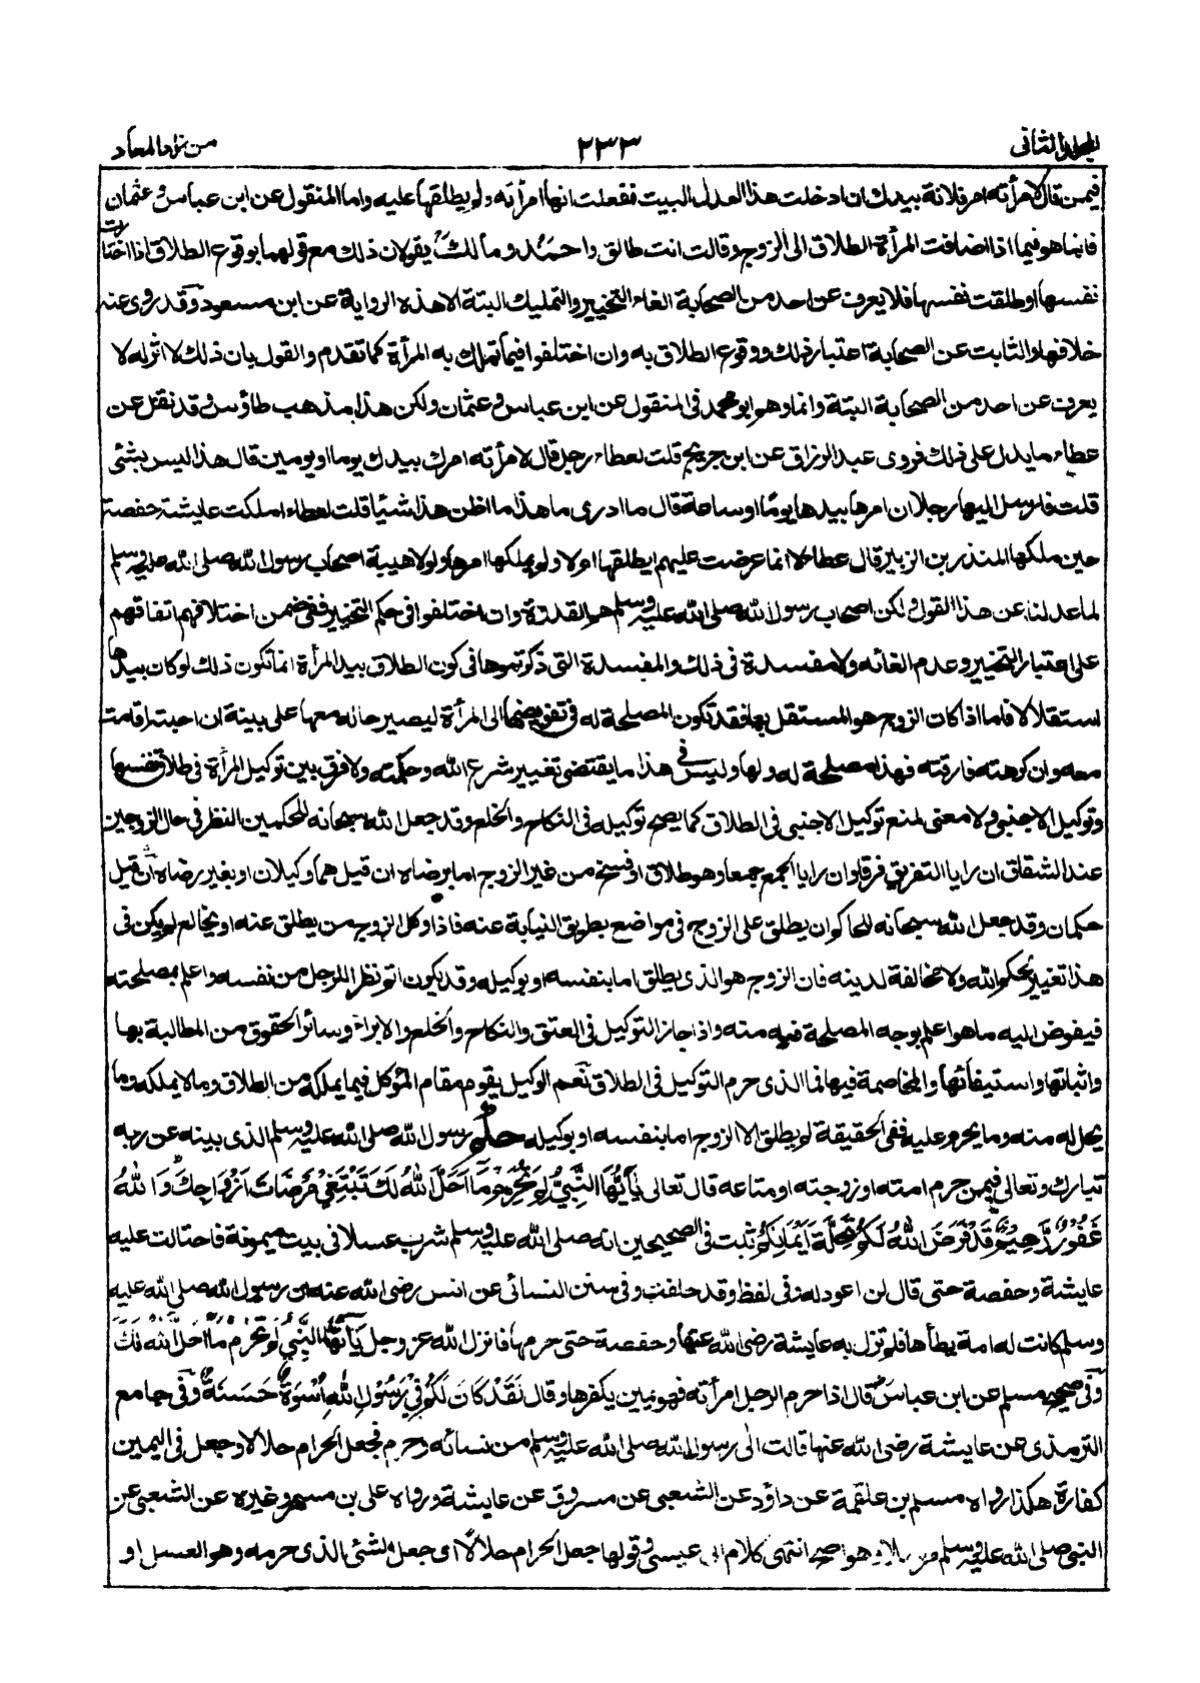 المجلد الثانى
٢٣٣
من زاد المعاد
فيمن قال لامرأته امر فلانة بيدك ان ادخلت هذا العدل البيت ففعلت انها امرأته ولم يطلقها عليه واما المنقول عن ابن عباس وعثمان
فانما هو فيما اذا اضافت المرأة الطلاق الى الزوج وقالت انت طالق واحمد ومالك يقولان ذلك مع قولهما بوقوع الطلاق اذا اختارت
نفسها او طلقت نفسها فلا يعرف عن احد من الصحابة الغاء التخيير والتمليك البتة الا هذه الرواية عن ابن مسعود وقد روى عنه
خلافها والثابت عن الصحابة اعتبار ذلك ووقوع الطلاق به وان اختلفوا فيما تملك به المرأة كما تقدم والقول بان ذلك لا اثر له لا
يعرف عن احد من الصحابة البتة وانما وهو ابو محمد فى المنقول عن ابن عباس وعثمان ولكن هذا مذهب طاؤس وقد نقل عن
عطاء ما يدل على ذلك فروى عبد الرزاق عن ابن جريج قلت لعطاء رجل قال لامرأته امرك بيدك يوما او يومين قال هذا ليس بشئ
قلت فارسل اليها رجلا ان امرها بيدها يوما او ساعة قال ما ادرى ما هذا ما اظن هذا شيئا قلت لعطاء املكت عايشة حفصة
حين ملكها المنذر بن الزبير قال عطاء لا انما عرضت عليهم ايطلقها ام لا ولم يملكها امرها ولولا هيبة اصحاب رسول الله صلى الله عليه وسلم
لما عدلنا عن هذا القول ولكن اصحاب رسول الله صلى الله عليه وسلم هم القدوة وان اختلفوا فى حكم التخيير ففى ضمن اختلافهم اتفاقهم
على اعتبار التخيير وعدم الغائه ولا مفسدة فى ذلك والمفسدة التى ذكرتموها فى كون الطلاق بيد المرأة انما تكون ذلك لو كان بيدها
استقلالا فاما اذا كان الزوج هو المستقل بها فقد تكون المصلحة له فى تفويضها الى المرأة ليصير حاله معها على بينة ان احبته اقامت
معه وان كرهته فارقته فهذا مصلحة له ولها وليس فى هذا ما يقتضى تغيير شرع الله وحكمته ولا فرق بين توكيل المرأة فى طلاق نفسها
وتوكيل الاجنبى ولا معنى لمنع توكيل الاجنبى فى الطلاق كما يصح توكيله فى النكاح والخلع وقد جعل الله سبحانه للحكمين النظر فى حال الزوجين
عند الشقاق ان رايا التفريق فرقا وان رايا الجمع جمعا وهو طلاق او فسخ من غير الزوج اما برضاه ان قيل هما وكيلان او بغير رضاه ان قيل
حكمان وقد جعل الله سبحانه للحاكم ان يطلق على الزوج فى مواضع بطريق النيابة عنه فاذا وكل الزوج من يطلق عنه او يخالع لم يكن فى
هذا تغيير لحكم الله ولا مخالفة لدينه فان الزوج هو الذى يطلق اما بنفسه او بوكيله وقد يكون اتم نظرا للرجل من نفسه واعلم بمصلحته
فيفوض اليه ما هو اعلم بوجه المصلحة فيه منه واذا جاز التوكيل فى العتق والنكاح والخلع والابراء وسائر الحقوق من المطالبة بها
واثباتها واستيفائها والمخاصمة فيها فما الذى حرم التوكيل فى الطلاق نعم الوكيل يقوم مقام الموكل فيما يملكه من الطلاق وما لا يملكه وما
يحل له منه وما يحرم عليه ففى الحقيقة لم يطلق الا الزوج اما بنفسه او بوكيله حكم رسول الله صلى الله عليه وسلم الذى بينه عن ربه
تبارك وتعالى فيمن حرم امته او زوجته او متاعه قال تعالى يٰأَيُّهَا النَّبِيُّ لِمَ تُحَرِّمُ مَا أَحَلَّ اللهُ لَكَ تَبْتَغِي مَرْضَاتَ أَزْوَاجِكَ وَاللهُ
غَفُورٌ رَّحِيمٌ قَدْ فَرَضَ اللهُ لَكُمْ تَحِلَّةَ أَيْمَانِكُمْ ثبت فى الصحيحين انه صلى الله عليه وسلم شرب عسلا فى بيت ميمونة فاحتالت عليه
عايشة وحفصة حتى قال لن اعود له وفى لفظ وقد حلفت وفى سنن النسائى عن انس رضى الله عنه ان رسول الله صلى الله عليه
وسلم كانت له امة يطأها فلم تزل به عايشة رضى الله عنها وحفصة حتى حرمها فانزل الله عز وجل يٰأَيُّهَا النَّبِيُّ لِمَ تُحَرِّمُ مَا أَحَلَّ اللهُ لَكَ
وفى صحيح مسلم عن ابن عباس قال اذا حرم الرجل امرأته فهو يمين يكفرها وقال لَقَدْ كَانَ لَكُمْ فِي رَسُولِ اللهِ أُسْوَةٌ حَسَنَةٌ وفى جامع
الترمذى عن عايشة رضى الله عنها قالت الى رسول الله صلى الله عليه وسلم من نسائه وحرم فجعل الحرام حلالا وجعل فى اليمين
كفارة هكذا رواه مسلم بن علقمة عن داؤد عن الشعبى عن مسروق عن عايشة ورواه على بن مسهر وغيره عن الشعبى عن
النبى صلى الله عليه وسلم مرسلا وهو اصح انتهى كلام ابى عيسى وقولها جعل الحرام حلالا اى جعل الشئ الذى حرمه وهو العسل او